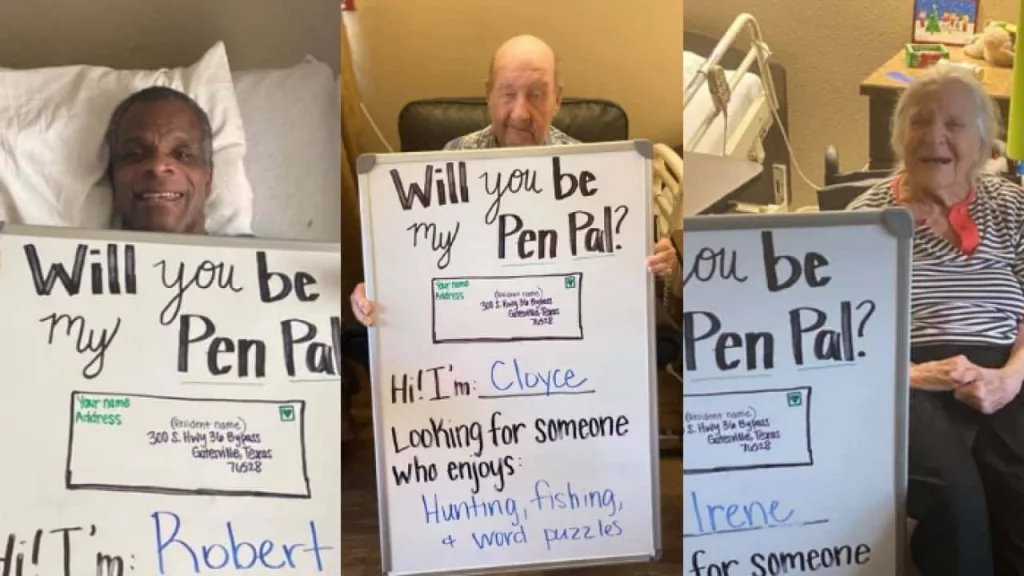 Will you be
my Pen Pal
Your name
Address
(Resident name)
300 S. Hwy 36 Bypass
Gatesville, Texas
76528
Hi! I'm: Robert
Will you be
my Pen Pal?
Your name
Address
(Resident name)
300 S. Hwy 36 Bypass
Gatesville, Texas
76528
Hi! I'm: Cloyce
Looking for someone
who enjoys:
Hunting, fishing,
+ word puzzles
ou be
Pen Pal?
(Resident name)
S. Hwy 36 Bypass
Gatesville, Texas
76528
Irene
for someone